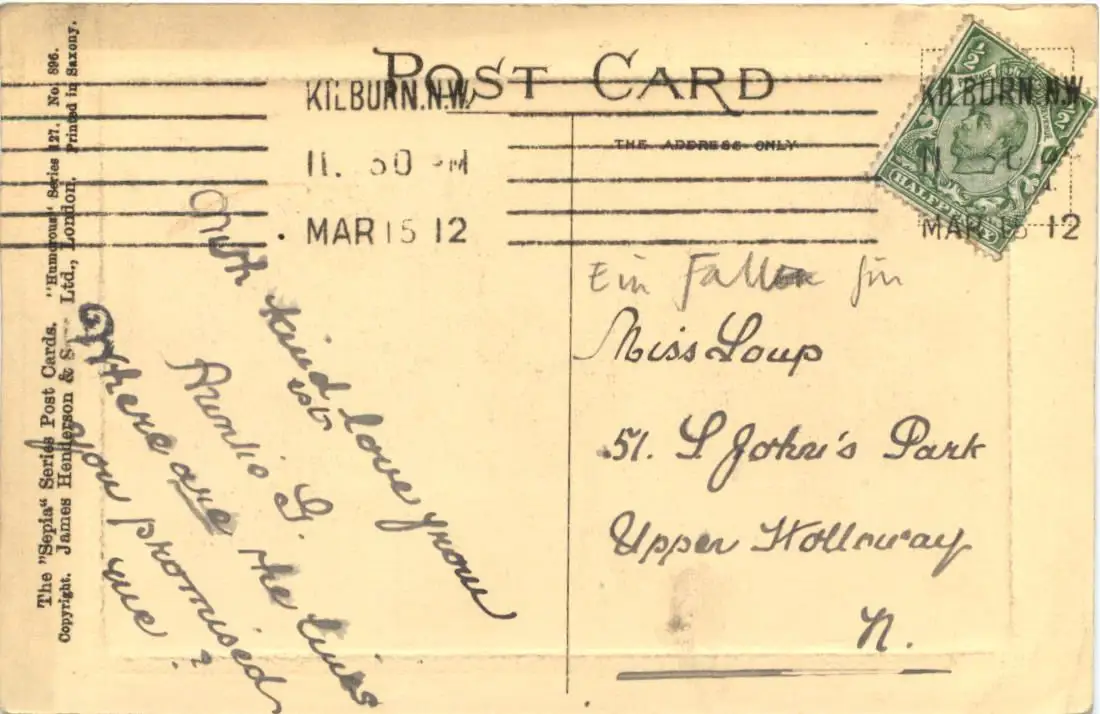 POST CARD
THE ADDRESS ONLY
KILBURN. N.W.
11. 30 PM
MAR 15 12
KILBURN. N.W.
MAR 15 12
½
½
HALFPENNY
With kind love from
est
Auntie G.
Where are the lines
you promised
me?
Ein
für
Miss Loup
51. St John's Park
Upper Holloway
N.
The "Sepia" Series Post Cards. "Humorous" Series 127. No. 896.
Copyright. James Henderson & S Ltd., London. Printed in Saxony.